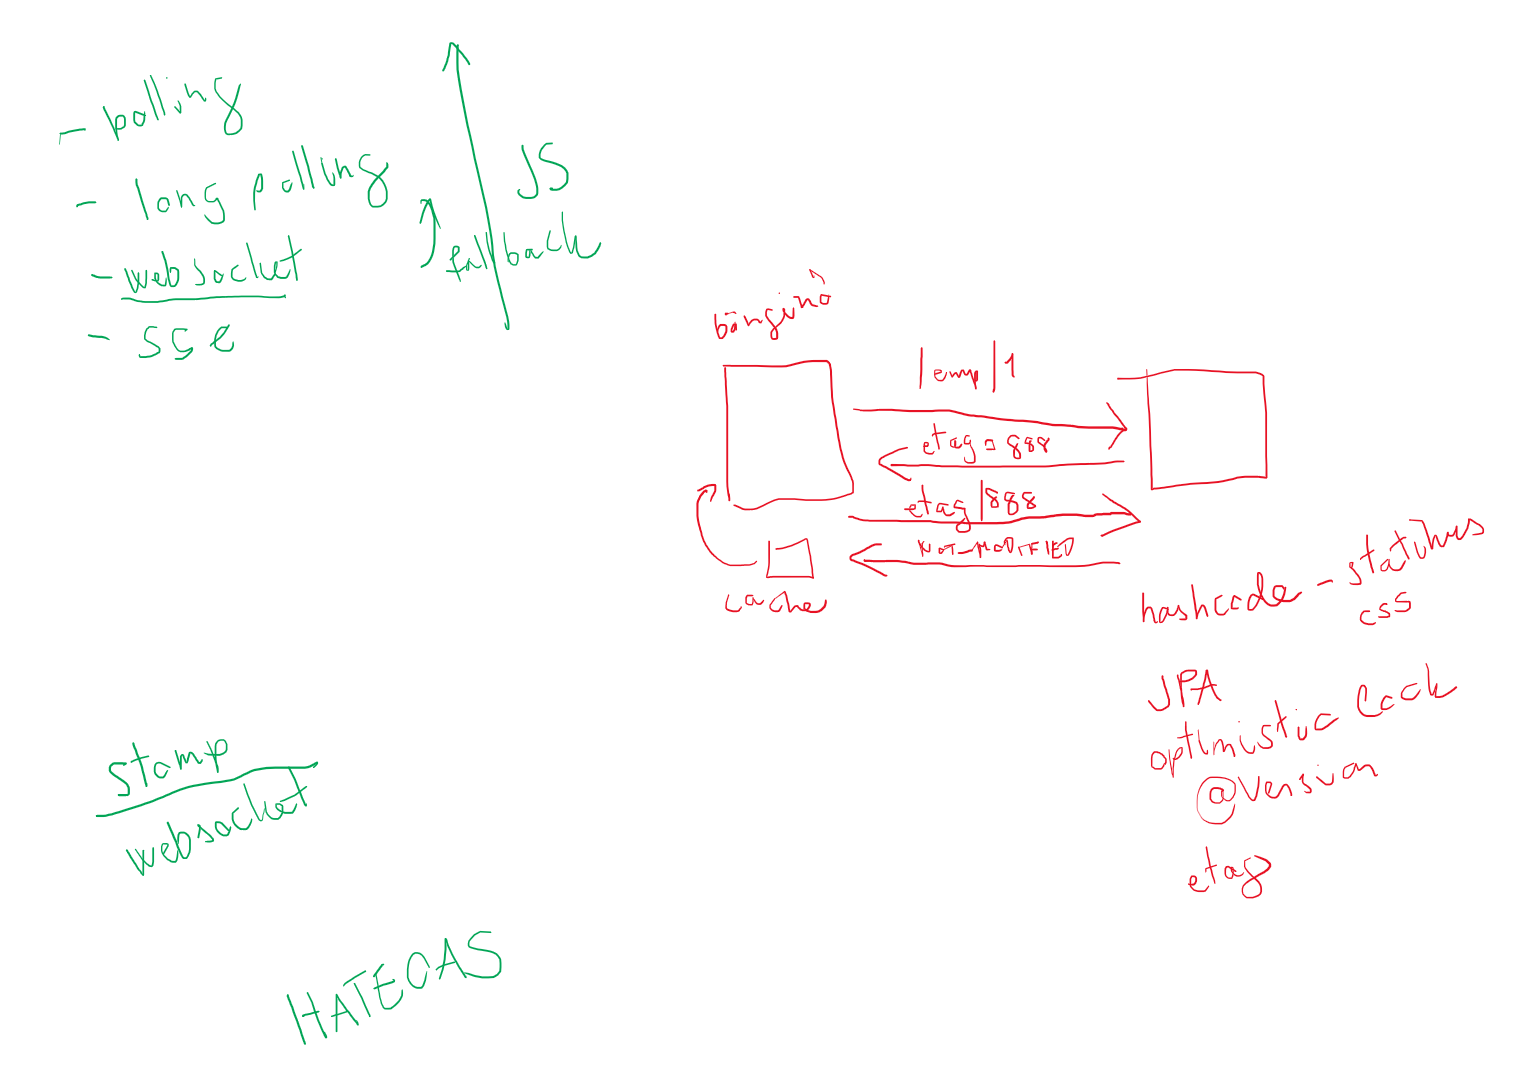 - polling
- long polling
- websocket
- sse
JS
fallback
böngésző
|emp|1
etag = 888
etag|888
NOT-MODIFIED
cache
hashcode - statikus
css
JPA
optimistic lock
@Version
etag
stomp
websocket
HATEOAS